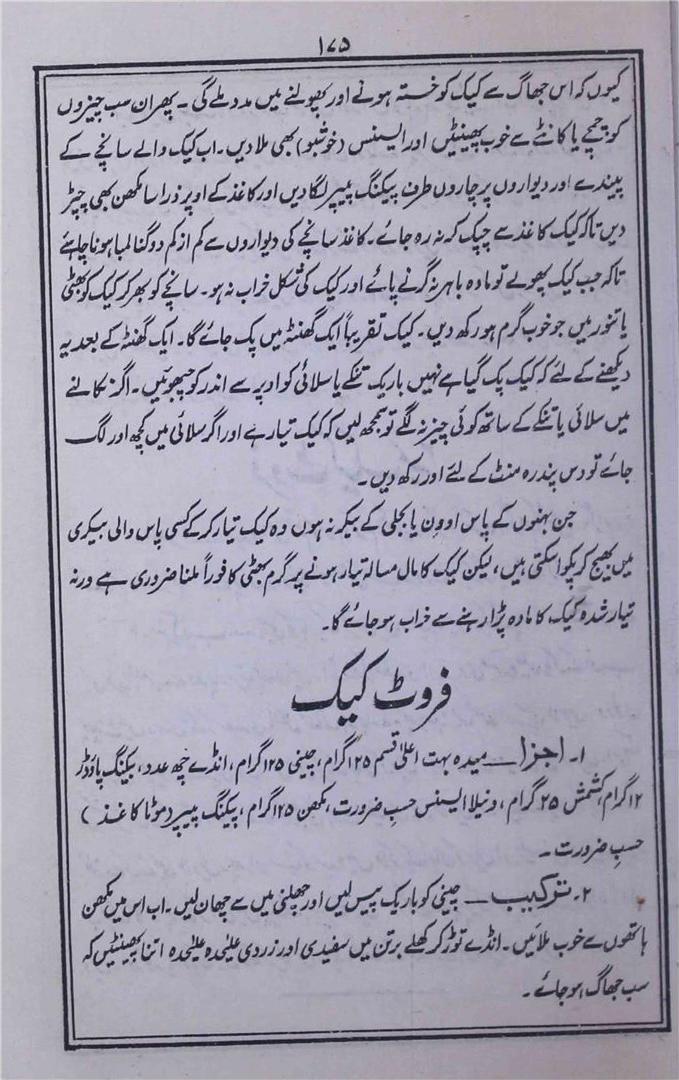 ۱۷۵
کیوں کہ اس جھاگ سے کیک کو خستہ ہونے اور پھولنے میں مدد ملے گی۔ پھر ان سب چیزوں
کو چمچے یا کانٹے سے خوب پھینٹیں اور ایسنس (خوشبو) بھی ملا دیں۔ اب کیک والے سانچے کے
پیندے اور دیواروں پر چاروں طرف پیکنگ پیپر لگا دیں اور کاغذ کے اوپر ذرا سا مکھن بھی چپڑ
دیں تاکہ کیک کاغذ سے چپک کہ نہ رہ جائے۔ کاغذ سانچے کی دیواروں سے کم از کم دوگنا لمبا ہونا چاہئے
تاکہ جب کیک پھولے تو مادہ باہر نہ گرنے پائے اور کیک کی شکل خراب نہ ہو۔ سانچے کو بھر کر کیک کو بھٹی
یا تنور میں جو خوب گرم ہو رکھ دیں۔ کیک تقریباً ایک گھنٹہ میں پک جائے گا۔ ایک گھنٹہ کے بعد یہ
دیکھنے کے لئے کہ کیک پک گیا ہے نہیں باریک تنکے یا سلائی کو اوپر سے اندر کو چبھوئیں۔ اگر نکالنے
میں سلائی یا تنکے کے ساتھ کوئی چیز نہ لگے تو سمجھ لیں کہ کیک تیار ہے اور اگر سلائی میں کچھ اور لگ
جائے تو دس پندرہ منٹ کے لئے اور رکھ دیں۔
جن بہنوں کے پاس اوون یا بجلی کے بیکر نہ ہوں وہ کیک تیار کر کے کسی پاس والی بیکری
میں بھیج کر پکوا سکتی ہیں، لیکن کیک کا مال مسالہ تیار ہونے پر گرم بھٹی کا فوراً ملنا ضروری ہے ورنہ
تیار شدہ کیک کا مادہ پڑا رہنے سے خراب ہو جائے گا۔
فروٹ کیک
۱۔ اجزا ـــ میدہ بہت اعلیٰ قسم ۱۲۵ گرام، چینی ۱۲۵ گرام، انڈے چھ عدد، بیکنگ پاؤڈر
۱۲ گرام، کشمش ۲۵ گرام، ونیلا ایسنس حسبِ ضرورت، مکھن ۱۲۵ گرام، پیکنگ پیپر (موٹا کاغذ)
حسبِ ضرورت۔
۲۔ ترکیب ـــ چینی کو باریک پیس لیں اور چھلنی میں سے چھان لیں۔ اب اس میں مکھن
ہاتھوں سے خوب ملائیں۔ انڈے توڑ کر کھلے برتن میں سفیدی اور زردی علیٰحدہ علیٰحدہ اتنا پھینٹیں کہ
سب جھاگ ہو جائے۔